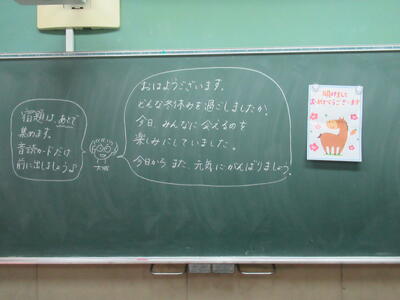 宿題は、あとで
集めます。
音読カードだけ
前に出しましょう♪
おはようございます。
どんな冬休みを過ごしましたか。
今日、みんなに会えるのを
楽しみにしていました。
今日から また、元気にがんばりましょう。
明けまして
おめでとうございます